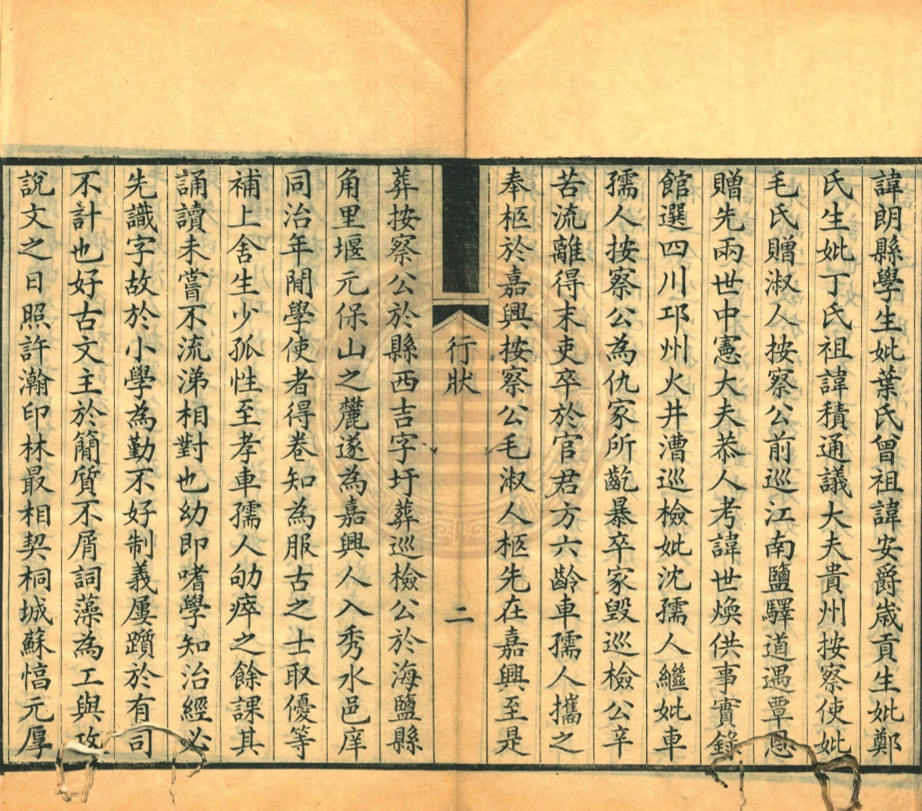 諱朗縣學生妣葉氏曾祖諱安爵歲貢生妣鄭
氏生妣丁氏祖諱積通議大夫貴州按察使妣
毛氏贈淑人按察公前巡江南鹽驛道遇覃恩
贈先兩世中憲大夫恭人考諱世煥供事實錄
館選四川邛州火井漕巡檢妣沈孺人繼妣車
孺人按察公為仇家所齕暴卒家毀巡檢公辛
苦流離得末吏卒於官君方六齡車孺人攜之
奉柩於嘉興按察公毛淑人柩先在嘉興至是
行狀
二
葬按察公於縣西吉字圩葬巡檢公於海鹽縣
角里堰元保山之麓遂為嘉興人入秀水邑庠
同治年閒學使者得卷知為服古之士取優等
補上舍生少孤性至孝車孺人劬瘁之餘課其
誦讀未嘗不流涕相對也幼即嗜學知治經必
先識字故於小學為勤不好制義屢躓於有司
不計也好古文主於簡質不屑詞藻為工與攷
說文之日照許瀚印林最相契桐城蘇惇元厚